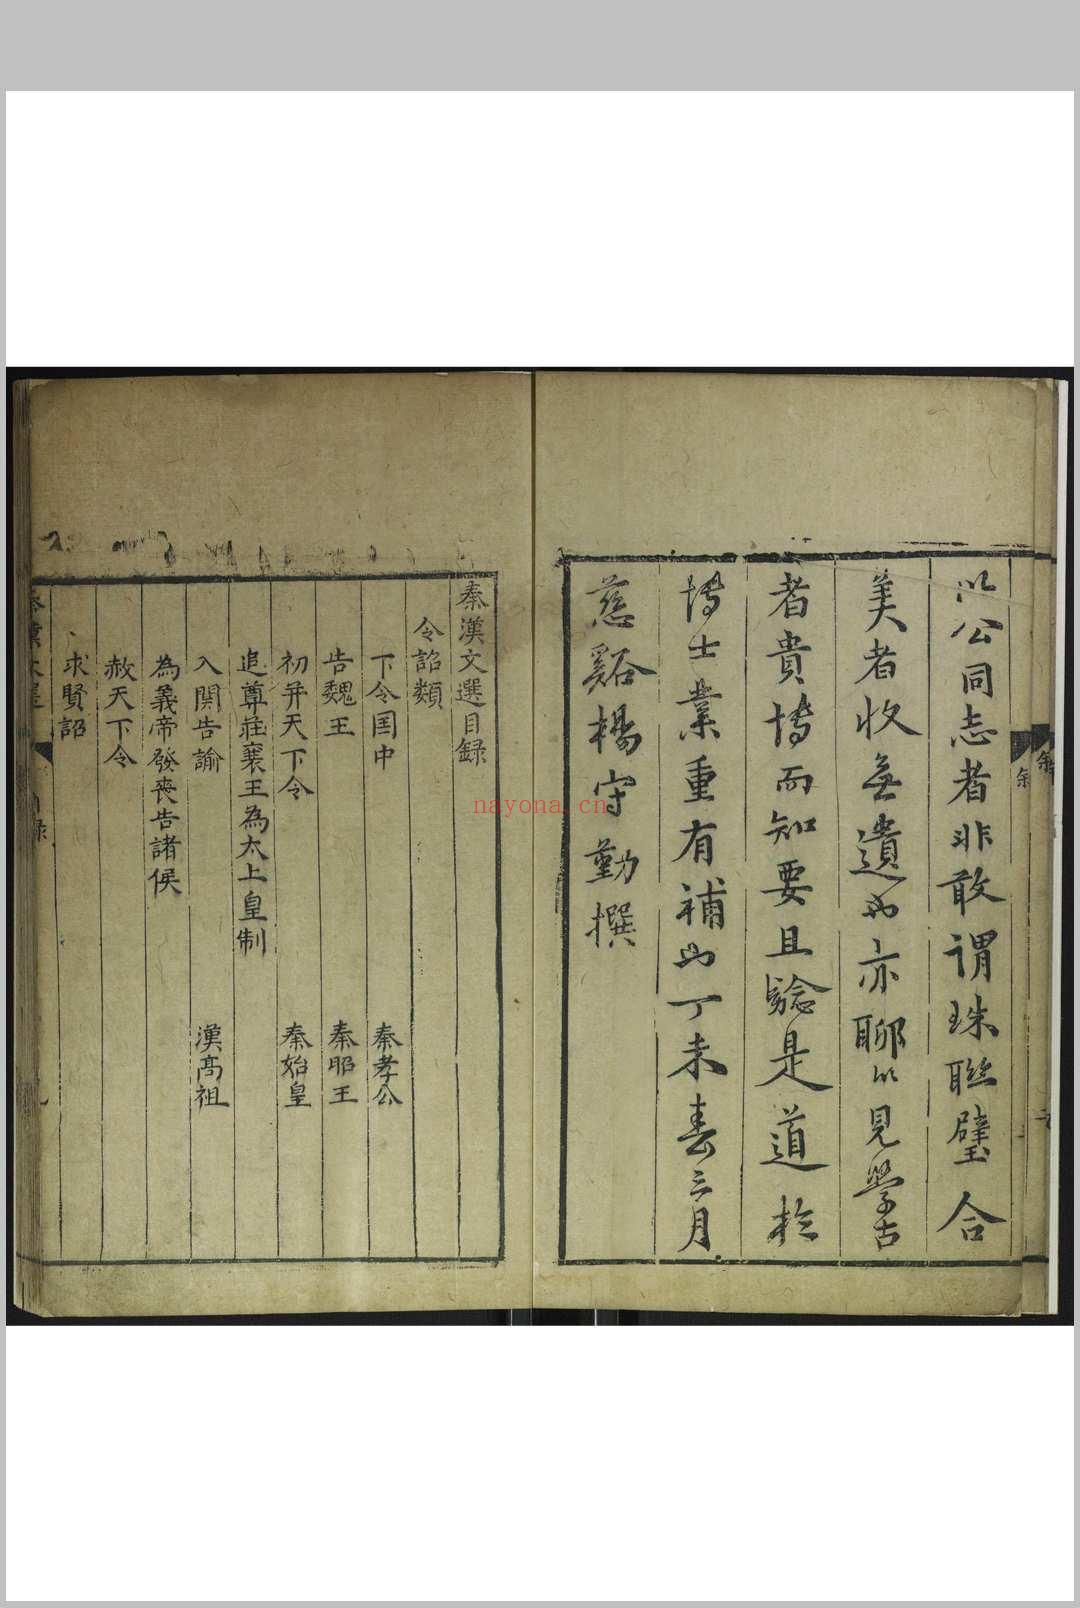 以公同志者非敢謂珠聯璧合
美者收無遺也亦聊以見學古
者貴博而知要且驗是道於
博士業重有補也丁未春三月
慈谿楊守勤撰
叙
叙
秦漢文選目録
令詔類
下令国中 秦孝公
告魏王 秦昭王
初并天下令 秦始皇
追尊莊襄王為太上皇制
入関告諭 漢高祖
為義帝發喪告諸侯
赦天下令
求賢詔
nayona.cn